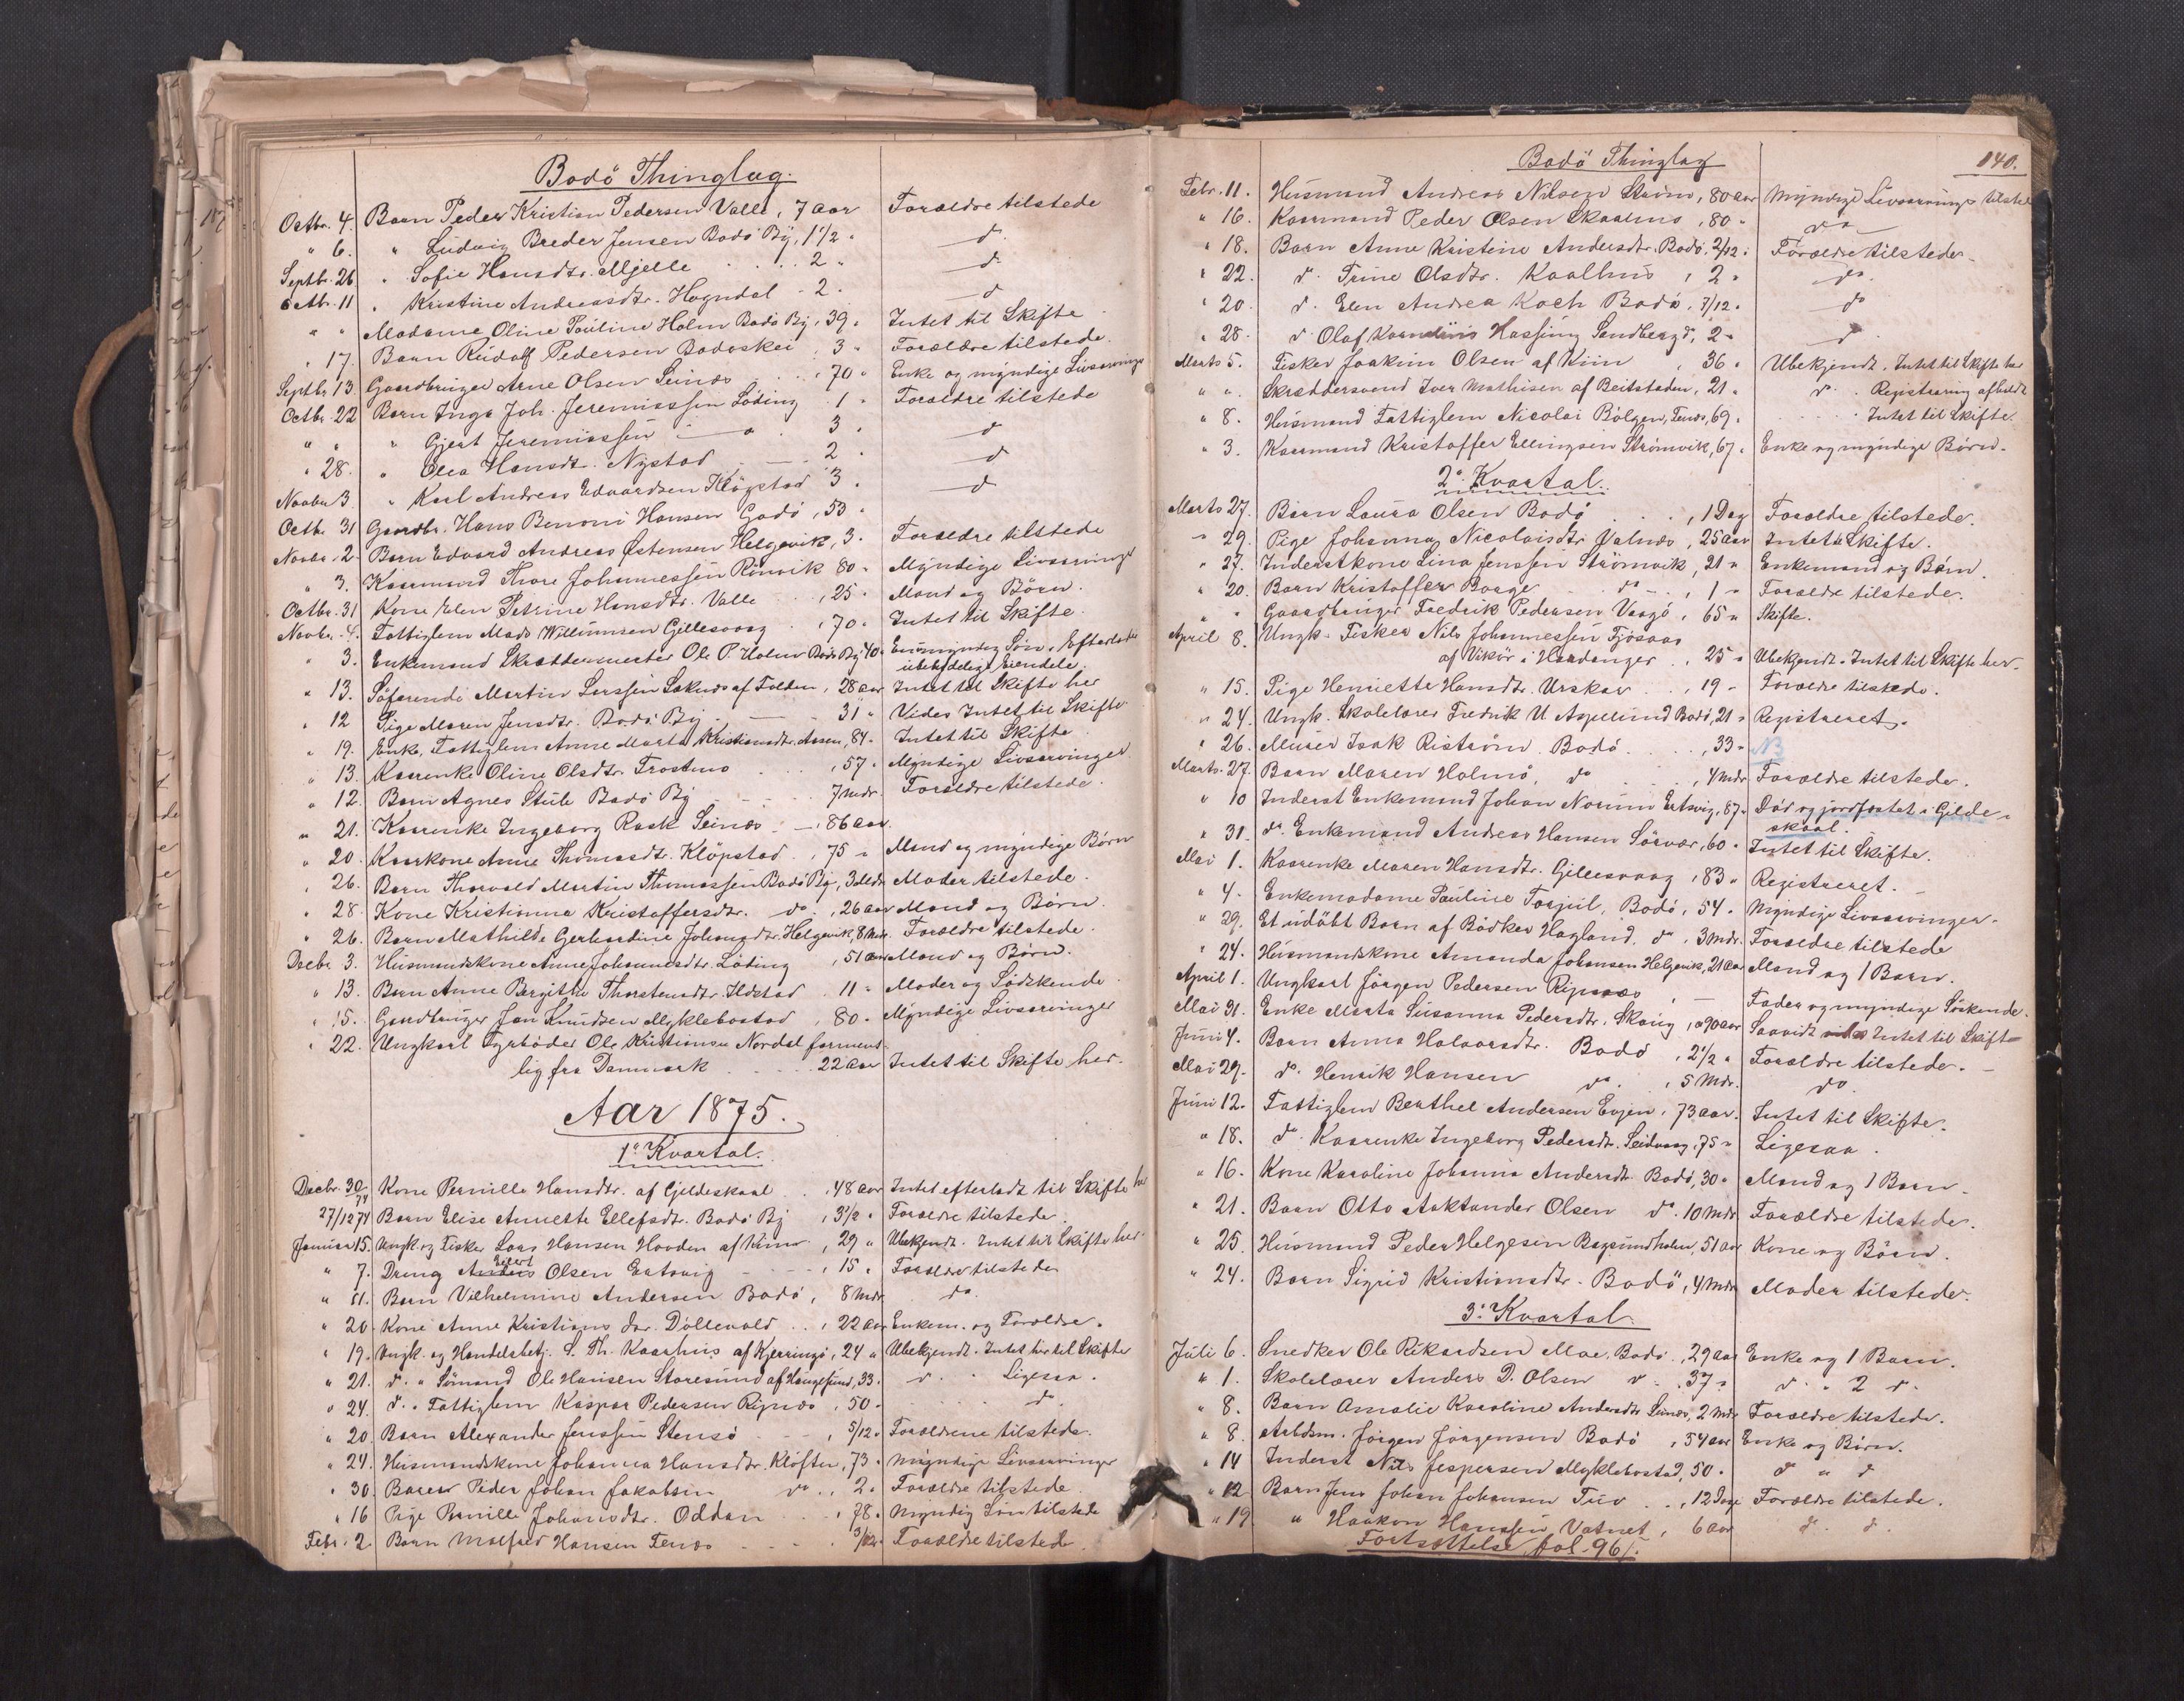 Bodö Thinglag.
Octbr. 4. Barn Peder Kristian Pedersen Valle, 7 Aar Forældre tilstede
" 6. " Ludvig Breder Jensen Bodö By, 1 1/2 " d
Septbr. 26 " Sofie Hansdtr. Mjelle 2 " d
Octbr. 11 " Kristine Andreasdtr. Hogndal 2 " d
" " Madame Oline Pauline Holm Bodö By, 39 " Intet til Skifte
" 17. Barn Rudolf Pedersen Bodøskei 3 " Forældre tilstede.
Septbr. 13. Gaardbruger Arne Olsen Seines 70 " Enke og myndige Livsarvinger
Octbr. 22 Barn Inga Joh. Jeremiassen Löding 1 " Forældre tilstede
" " " Gjert Jeremiassen 3 " d
" 28. " Olea Hansdtr. Nystad 2 " d
Novbr 3 " Karl Andreas Edvardsen Klögstad 3 " d
Octb. 31 Gaardbr. Hans Benoni Hansen Godö, 53 "
Novbr. 2 Barn Edvard Andreas Östensen Helgevik, 3. Forældre tilstede
" 3. Kaarmand Thore Johannessen Rönvik 80 " Myndige Livsarvinger
Octbr. 31 Kone Elen Petrine Hansdtr. Valle , 25 " Mand og Börn.
Novbr. 4. Fattiglem Mads Willumsen Gillesvaag , 70 " Intet til Skifte.
" 3. Enkemand Skræddermester Ole P. Holm Bodö By 40 " En myndig Sön. Efterlod
ubetydelige Eiendele.
" 13. Söfarende Martin Larssen Saknes af Folden, 28 aar Intet til Skifte her
" 12 Pige Maren Jensdtr. Bodö By 31 " Vides Intet til Skifte
" 19. Enke, Fattiglem Anne Marta Kristiansdtr. Aasen, 84 " Intet til Skifte
" 13. Kaarenke Oline Olsdtr. Frostmo , 57 " Myndige Livsarvinger
" 12. Barn Agnes Stub Bodö By 7 Mdr. Forældre tilstede.
" 21. Kaarenke Ingeborg Rask Seines , 86 Aar.
" 20. Kaarkone Anne Thomasdtr. Klöpstad , 75 " Mand og myndige Börn
" 26. Barn Thorvald Martin Thomassen Bodö By, 3 Mdr Moder tilstede.
" 28. Kone Kristianna Kristoffersdtr. do. , 26 aar Mand og Börn.
" 26. Barn Mathilde Gerhardine Johansdtr. Helgevik, 8 Mdr. Forældre tilstede.
Decbr 3. Husmandskone Anne Johannesdtr. Löding , 51 aar Mand og Börn.
" 13. Barn Anne Bergithe Thorstensdtr. Ildstad 11 " Moder og Södskende
" 15. Gaardbruger Jan Knudsen Myklebostad , 80 " Myndige Livsarvinger
" 22. Ungkarl Fyrböder Ole Kristiansen Nordal forment-
lig fra Danmark 22 Aar Intet til Skifte her.
Aar 1875.
1o Kvartal.
Decbr. 30/74 Kone Pernille Hansdtr. af Gildeskaal , 48 aar Intet efterladt til Skifte her
27/12 74 Barn Elise Annette Ellefsdtr. Bodö By , 3 1/2 " Forældre tilstede.
Januar 15. Ungk. og Fisker Lars Hansen Hovden af , 29 " Ubekjendt. Intet til Skifte her.
" 7. Dreng Olsen Ertsvig , 15 " Forældre tilstede
" 11. Barn Vilhelmine Andersen Bodö, 8 Mdr do.
" 20. Kone Anne Kristians dtr. Döllevald , 22 aar Enkem. og Forældre.
" 19. Ungk. og Handelsbetj. S. Th. Kaarhus af Kjerringö, 24 " Ubekjendt. Intet her til Skifte
" 21. d. " Sömand Ole Hansen Storesund af Haugesund, 33. d. " Ligesaa.
" 24. d. " Fattiglem Kaspar Pedersen Ripnes , 50 " do
" 20. Barn Alexander Jenssen Stensö , 5/12 " Forældrene tilstede.
" 24. Husmandskone Johanna Hansdtr. Klöften, 73 " Myndige Livsarvinger
" 30. Barn Peder Johan Jakobsen do. , 2 " Forældre tilstede.
" 16 Pige Pernille Johansdtr. Oddan , 78 " Myndig Sön tilstede
Febr. 2. Barn Malfred Hansen Fenes 3/12 " Forældre tilstede.
Bodö Thinglag 140.
Febr. 11. Husmand Andreas Nilsen Ström, 80 aar Myndige Livsarvinger tilsted
" 16. Kaarmand Peder Olsen Skaalmo , 80 " do
" 18. Barn Anne Kristine Andersdtr. Bodö, 2/12 " Forældre tilstede.
" 22. d. Trine Olsdtr. Kaalhus , 2 " do
" 20. d. Elen Andrea Koch Bodö, 7/12 " do
" 28. d. Olaf Kornelius Hassing Sandberg d, 2 " d.
Marts 5. Fisker Joakim Olsen af , 36 " Ubekjendt. Intet til Skifte her
" " Skræddersvend Iver Mathisen af Beitstaden, 21 " d. Registrering afholdt
" 8. Husmand Fattiglem Nicolai Bölgen, Fenes, 69 " Intet til Skifte.
" 3. Kaarmand Kristoffer Ellingsen Strömvik, 67 " Enke og myndige Börn.
2o Kvartal.
Marts 27. Barn Laura Olsen Bodö , 1 Dag Forældre tilstede.
" 29. Pige Johanna Nicolaisdtr Valnes , 25 aar Intet til Skifte.
" 27. Inderstkone Lina Jenssen Strömvik, 21 " Enkemand og Barn.
" 20. Barn Kristoffer Borge do , 1 " Forældre tilstede.
" " Gaardbruger Fredrik Pedersen Vaagö , 65 " Skifte.
April 8. Ungk. Fisker Nils Johannessen Fjösaas
af Vikör i Hardanger , 25 " Ubekjendt. Intet til Skifte her.
" 15. Pige Henriette Hansdtr. Urskar , 19 " Forældre tilstede.
" 24. Ungk. Skolelærer Fredrik U Aspelund Bodö, 21 " Registreret.
" 26. Murer Isak Riström Bodö , 33 " NB
Marts. 27. Barn Maren Holmö, do , 4 Mdr Forældre tilstede.
" 10 Inderst Enkemand Johan Norum Ertsvig, 87 " Död og jordfæstet i Gilde-
skaal.
" 31. do. Enkemand Andreas Hansen Sörvær, 60 " Intet til Skifte.
Mai 1. Kaarenke Maren Hansdtr. Gillesvaag , 83 " Registreret.
" 4. Enkemadame Pauline Torjul, Bodö, 54 " Myndige Livsarvinger.
" 29. Et udöbt Barn af Bödker Hagland, do , 3 Mdr. Forældre tilstede
" 24. Husmandskone Amanda Johansen Helgevik, 21 aar Mand og 1 Barn.
April 1. Ungkarl Jörgen Pedersen Ripnes , — Fader og myndige Söskende.
Mai 31. Enke Marta Susanna Pedersdtr. Skaug , 90 aar Saavidt vides Intet til Skifte
Juni 4. Barn Anna Halvorsdtr. Bodö , 2 1/2 " Forældre tilstede.
Mai 29. do. Henrik Hansen do. , 5 Mdr. do
Juni 12. Fattiglem Berthel Andersen Evjen, 73 aar. Intet til Skifte.
" 18. do. Kaarenke Ingeborg Pedersdtr. Seivaag, 75 " Ligesaa.
" 16. Kone Karoline Johanna Andersdtr. Bodö, 30 " Mand og 1 Barn.
" 21. Barn Otto Olsen do. 10 Mdr Forældre tilstede.
" 25. Husmand Peder Helgesen Bogsundholm, 51 Aar Kone og Börn.
" 24. Barn Sigrid Kristiansdtr. Bodö, 4 Mdr Moder tilstede.
3o Kvartal.
Juli 6. Snedker Ole Rikardsen Moe, Bodö , 29 aar Enke og 1 Barn.
" 1. Skolelærer Anders D. Olsen d. , 37 " d. " 2 d.
" 8. Barn Amalie Karoline Andersdtr Seines, 2 Mdr Forældre tilstede.
" 8. Arbdsm. Jörgen Jörgensen Bodö , 54 aar Enke og Börn.
" 14 Inderst Nils Jespersen Myklebostad, 50 " d " d
" 12 Barn Jens Johan Johansen Tuv , 12 Dage Forældre tilstede.
" 19 " Haakon Hanssen Vatnet, 6 aar d. d.
Fortsættelse fol. 96/.